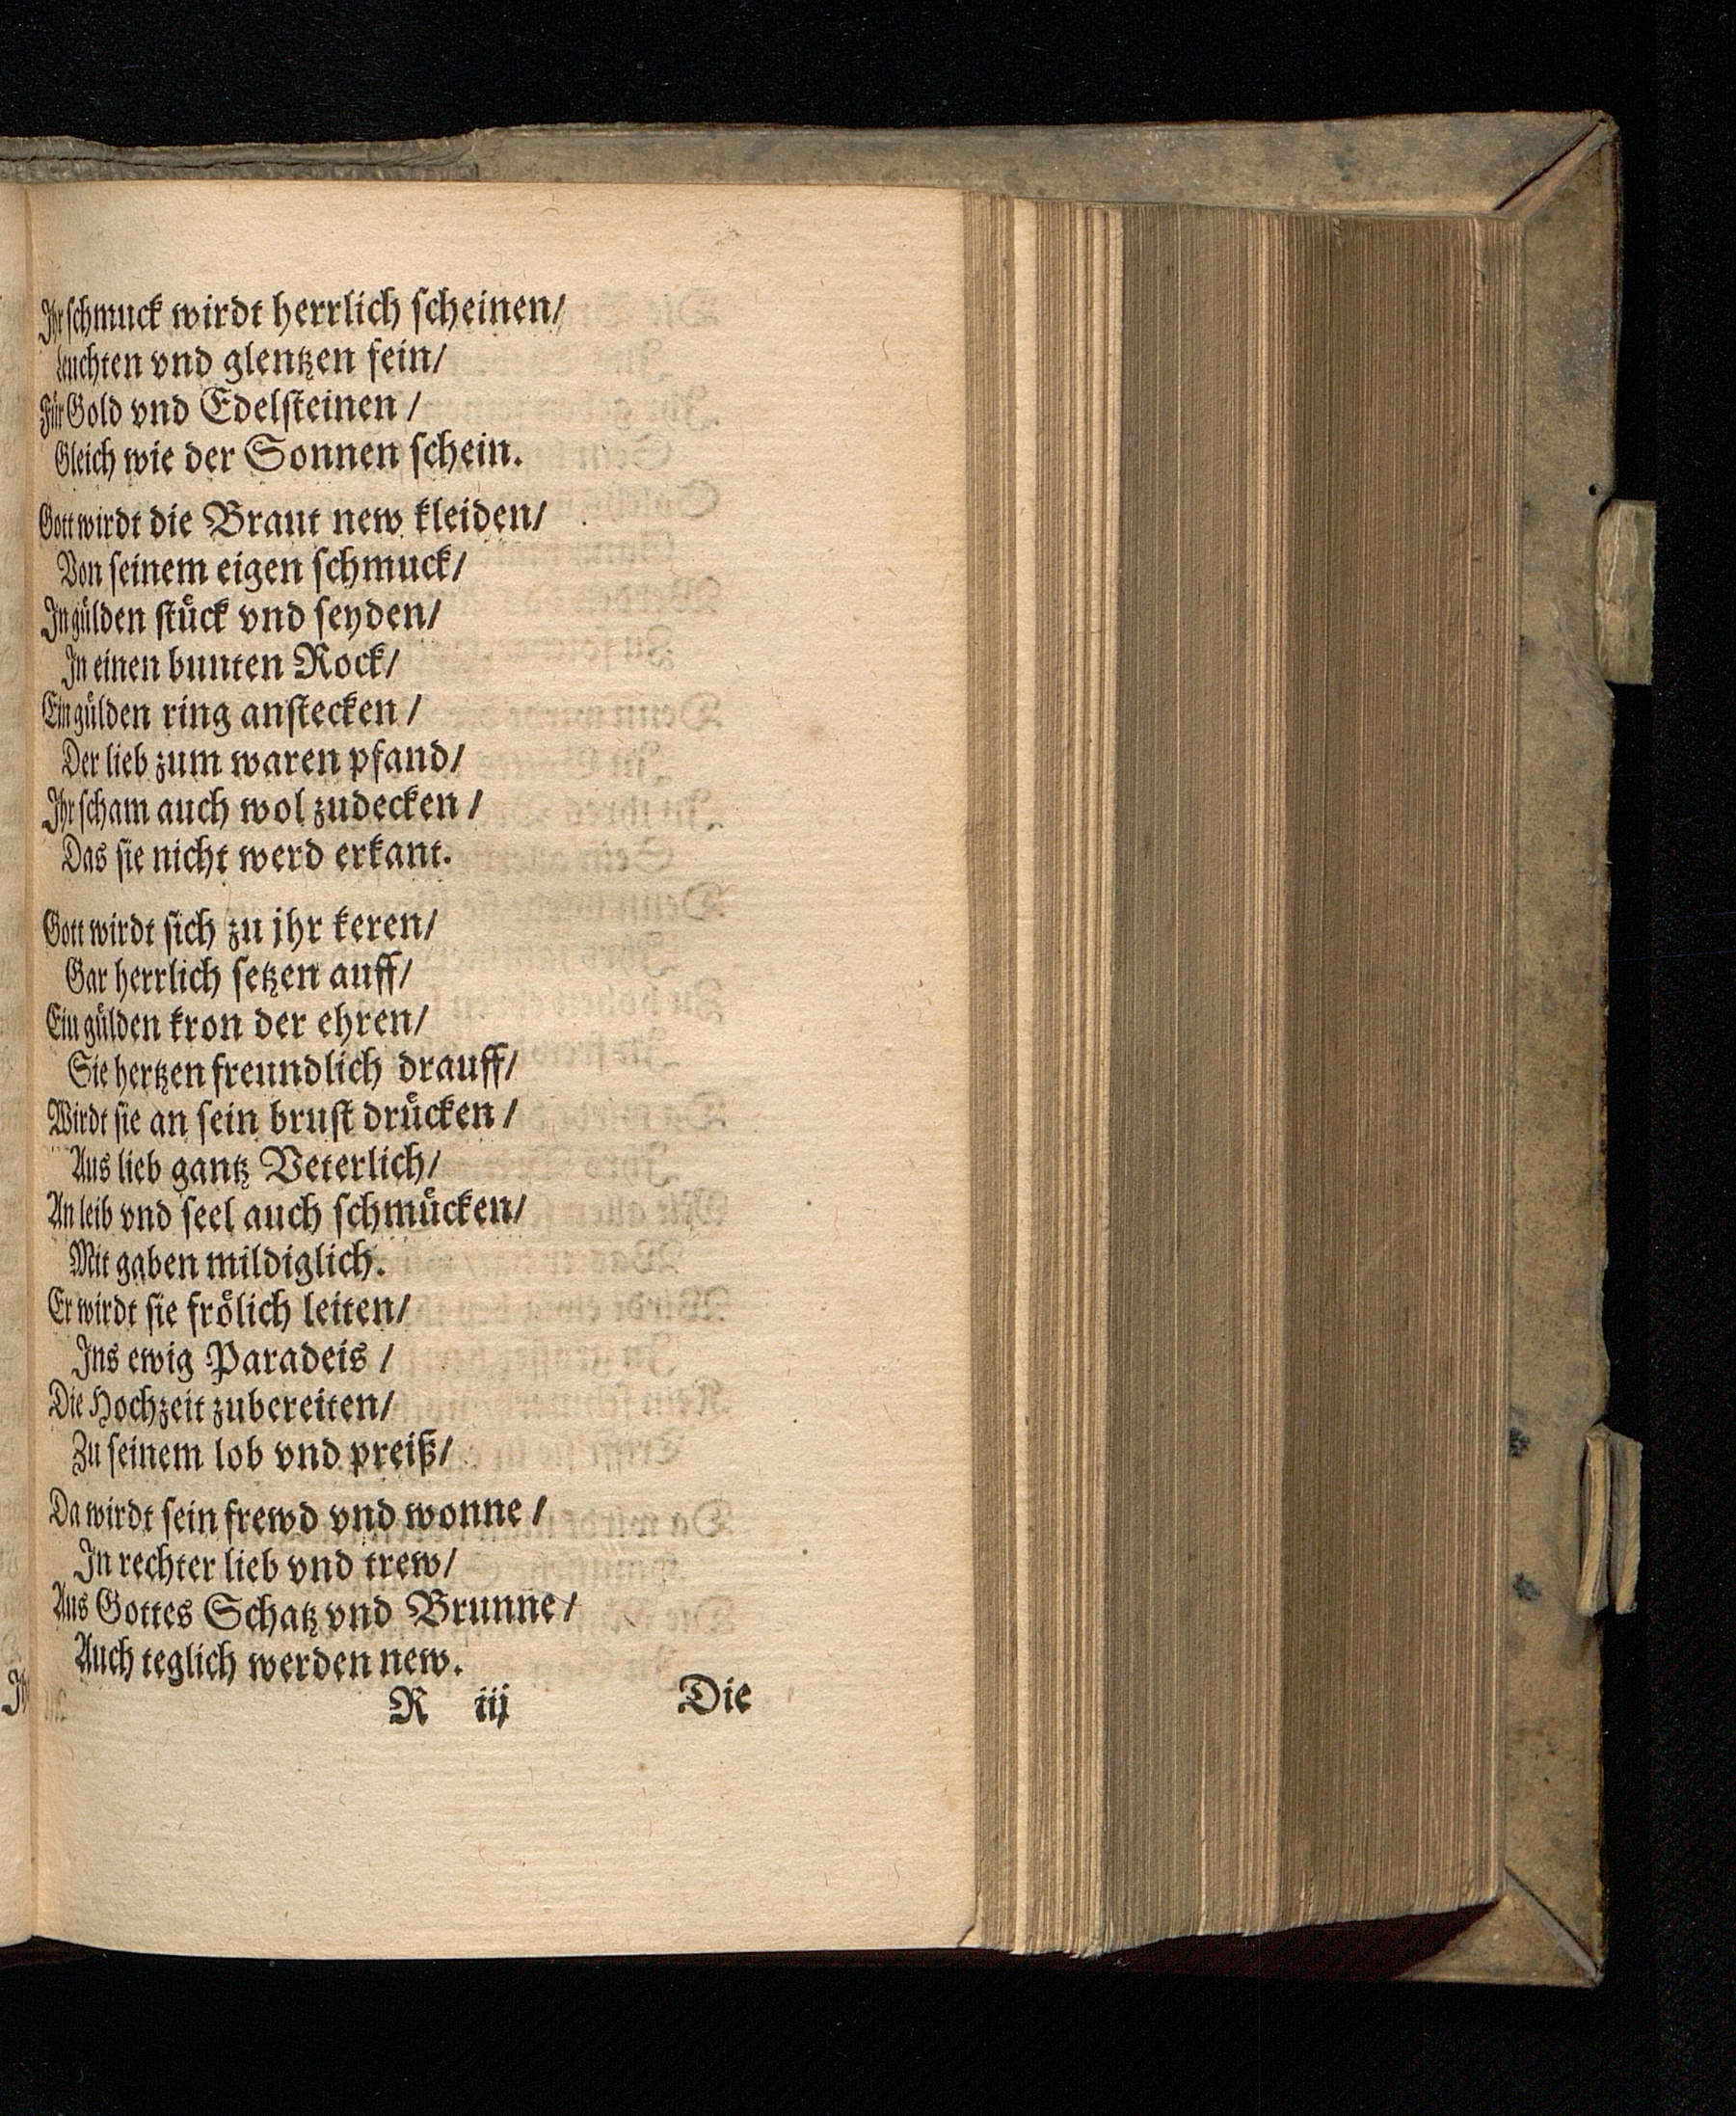 Ihr schmuck wirdt herrlich scheinen/
leuchten vnd glentzen fein/
Für Gold vnd Edelsteinen /
Gleich wie der Sonnen schein.
Gott wirdt die Braut new kleiden/
Von seinem eigen schmuck/
In gülden stück vnd seyden/
In einen bunten Rock/
Ein gülden ring anstecken /
Der lieb zum waren pfand/
Ihr scham auch wol zudecken /
Das sie nicht werd erkant.
Gott wirdt sich zu jhr keren/
Gar herrlich setzen auff/
Ein gülden kron der ehren/
Sie hertzen freundlich drauff/
Wirdt sie an sein brust drücken /
Aus lieb gantz Veterlich/
An leib vnd seel auch schmücken/
Mit gaben mildiglich.
Er wirdt sie frölich leiten/
Ins ewig Paradeis /
Die Hochzeit zubereiten/
Zu seinem lob vnd preiß/
Da wirdt sein frewd vnd wonne /
In rechter lieb vnd trew/
Aus Gottes Schatz vnd Brunne/
Auch teglich werden new.
R iij Die